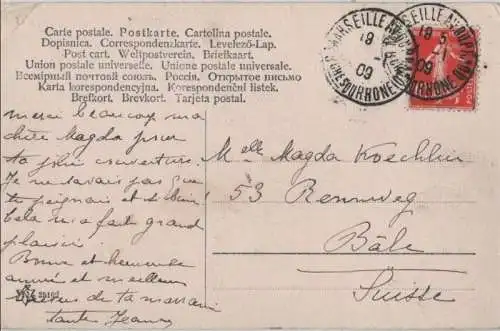 Carte postale. Postkarte. Cartolina postale.
Dopisnica. Correspondenzkarte. Levelező-Lap.
Post cart. Weltpostverein. Briefkaart.
Union postale universelle. Unione postale universale.
Всемірный почтовый союзъ. Россія. Открытое письмо
Karta korespondencyjna. Korespondenční lístek.
Brefkort. Brevkort. Tarjeta postal.
merci beaucoup ma
chère Magda pour
ta jolie couverture.
Je ne savais pas que
tu peignais et si bien!
Cela m'a fait grand
plaisir.
Bonne et heureuse
année et meilleurs
de ta marraine
tante Jeanne
MARSEILLE
09
MARSEILLE
09
Melle Magda Koechlin
53 Rennweg
Bâle
Suisse